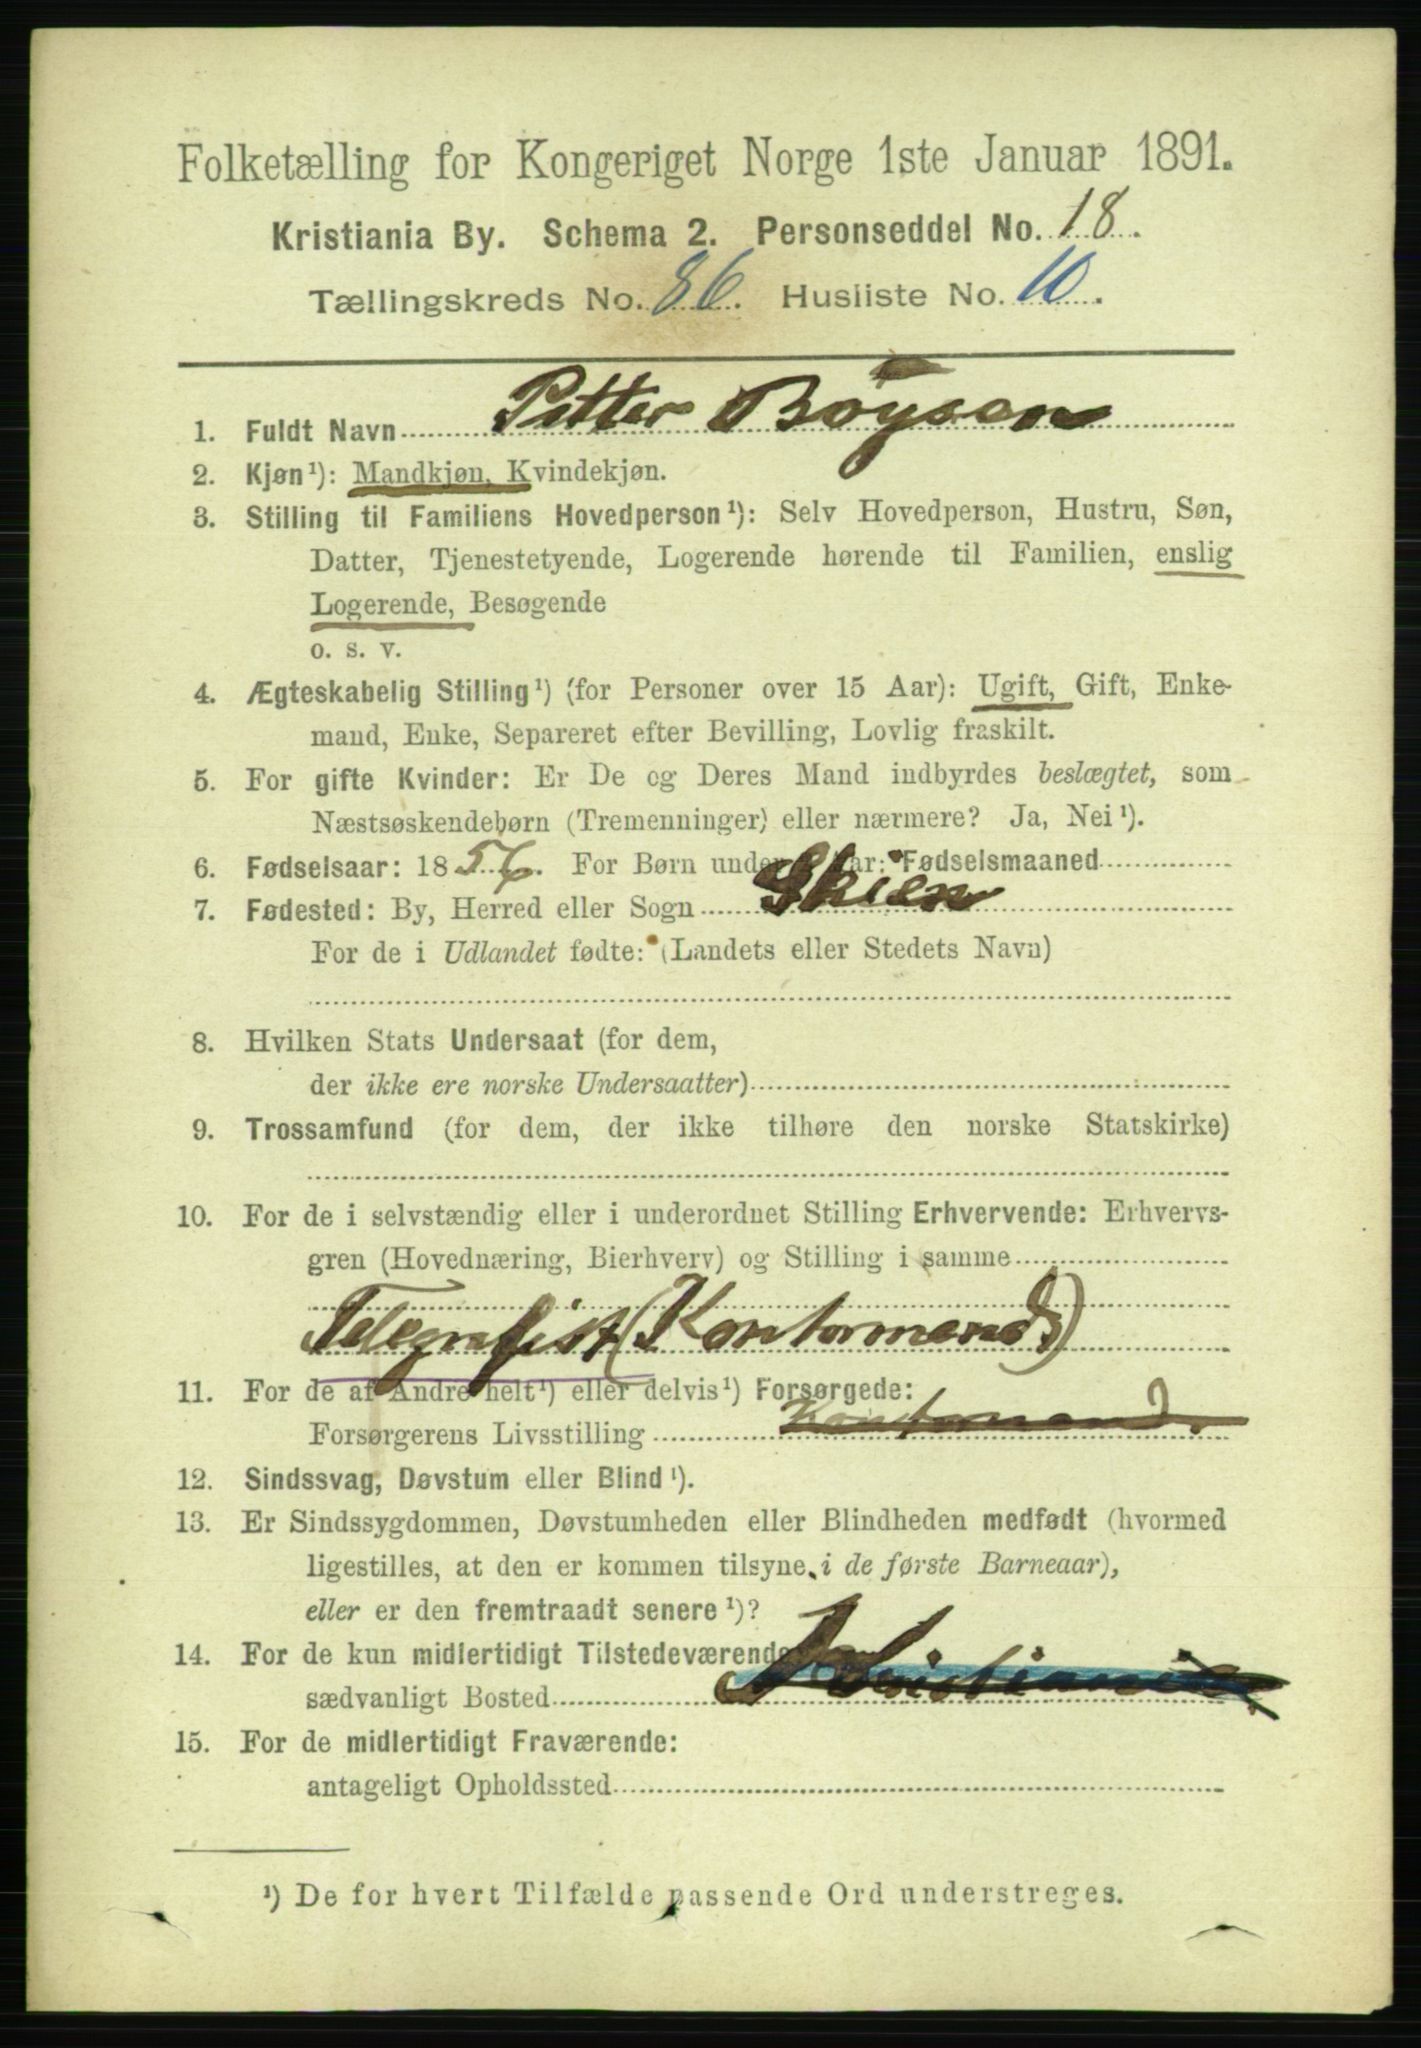 Folketælling for Kongeriget Norge 1ste Januar 1891.
Kristiania By. Schema 2. Personseddel No. 18.
Tællingskreds No. 86. Husliste No. 10.
1. Fuldt Navn Petter Böysen
2. Kjøn¹): Mandkjøn, Kvindekjøn.
3. Stilling til Familiens Hovedperson¹): Selv Hovedperson, Hustru, Søn,
Datter, Tjenestetyende, Logerende hørende til Familien, enslig
Logerende, Besøgende
o. s. v.
4. Ægteskabelig Stilling¹) (for Personer over 15 Aar): Ugift, Gift, Enke-
mand, Enke, Separeret efter Bevilling, Lovlig fraskilt.
5. For gifte Kvinder: Er De og Deres Mand indbyrdes beslægtet, som
Næstsøskendebørn (Tremenninger) eller nærmere? Ja, Nei¹).
6. Fødselsaar: 1856. For Børn under Aar: Fødselsmaaned
7. Fødested: By, Herred eller Sogn Skien
For de i Udlandet fødte: (Landets eller Stedets Navn)
8. Hvilken Stats Undersaat (for dem,
der ikke ere norske Undersaatter)
9. Trossamfund (for dem, der ikke tilhøre den norske Statskirke)
10. For de i selvstændig eller i underordnet Stilling Erhvervende: Erhvervs-
gren (Hovednæring, Bierhverv) og Stilling i samme
Telegrafist (Kontormand)
11. For de af Andre helt¹) eller delvis¹) Forsørgede:
Forsørgerens Livsstilling Kontormand.
12. Sindssvag, Døvstum eller Blind¹).
13. Er Sindssygdommen, Døvstumheden eller Blindheden medfødt (hvormed
ligestilles, at den er kommen tilsyne i de første Barneaar),
eller er den fremtraadt senere¹)?
14. For de kun midlertidigt Tilstedeværende
sædvanligt Bosted Kristiania
15. For de midlertidigt Fraværende:
antageligt Opholdssted
¹) De for hvert Tilfælde passende Ord understreges.